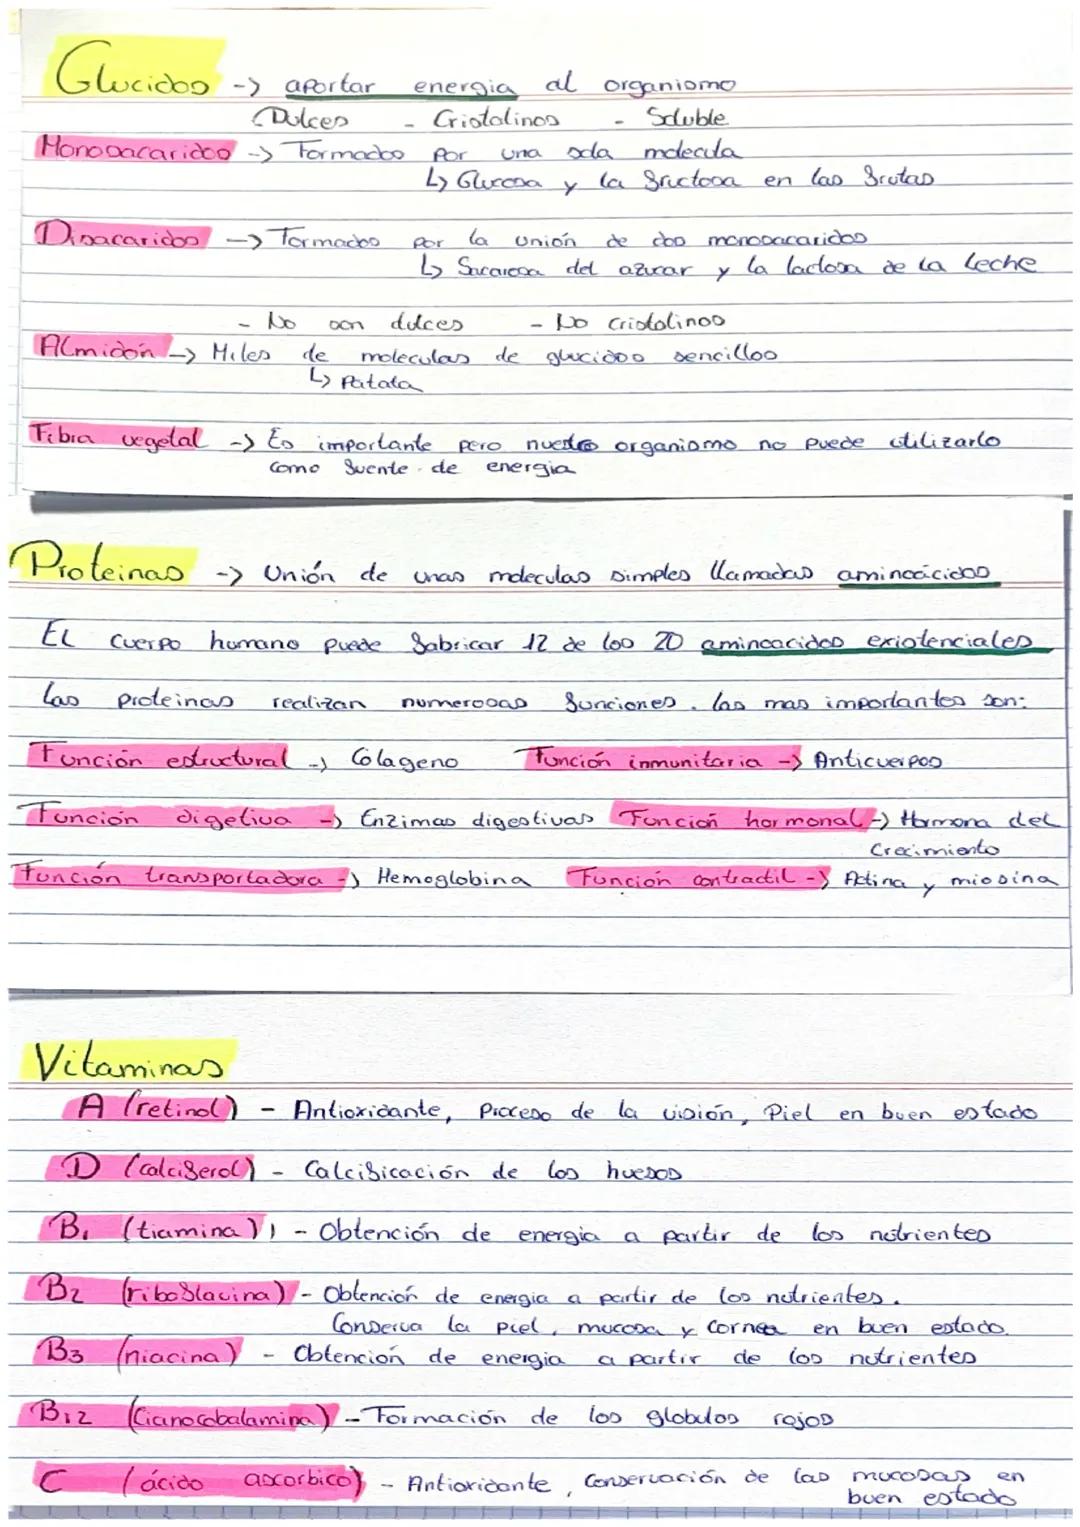 Glucidos -> aportar energia al organismo
Dulces - Cristalinos - Soluble
Monosacaridos -> Formados por una sola molecula
↳ Glucosa y la fructosa en las frutas
Disacaridos -> Formados por la unión de dos monosacaridos
↳ Sacarosa del azucar y la lactosa de la leche
- No son dulces - No cristalinos
Almidón -> Miles de moleculas de glucidos sencillos
↳ Patata
Fibra vegetal -> Es importante pero nuestro organismo no puede utilizarlo
como fuente de energia
Proteinas -> Unión de unas moleculas simples llamadas aminoácidos
El cuerpo humano puede fabricar 12 de los 20 aminoacidos existenciales
Las proteinas realizan numerosas funciones. las mas importantes son:
Función estructural -> Colageno Función inmunitaria -> Anticuerpos
Función digetiva -> Enzimas digestivas Función hormonal -> Hormona del
Crecimiento
Función transportadora -> Hemoglobina Función contractil -> Actina y miosina
Vitaminas
A (retinol) - Antioxidante, Proceso de la visión, Piel en buen estado
D (calciferol) - Calcificación de los huesos
B1 (tiamina) - Obtención de energia a partir de los nutrientes
B2 (riboflavina) - Obtención de energia a partir de los nutrientes.
Conserva la piel, mucosa y cornea en buen estado.
B3 (niacina) - Obtención de energia a partir de los nutrientes
B12 (cianocobalamina) - Formación de los globulos rojos
C (ácido ascorbico) - Antioxidante, Conservación de las mucosas en
buen estado